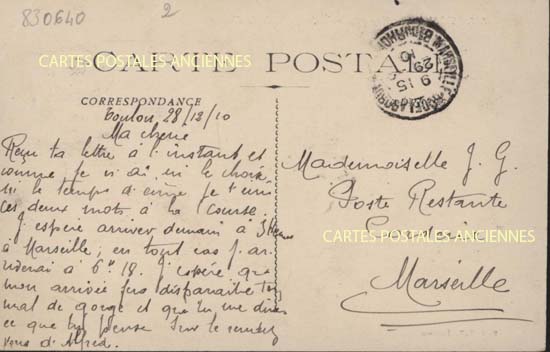 830640
2
CARTES POSTALES ANCIENNES
CARTE POSTALE
CORRESPONDANCE
Toulon, 28/12/10
Ma chérie
Reçu ta lettre à l'instant et
comme je n'ai ni le choix
ni le temps d'écrire je t'envoie
ces deux mots à la course.
J'espère arriver demain à 3 heures
à Marseille; en tout cas j'ar
riverai à 6h 18. J'espère que
mon arrivée fera disparaître ton
mal de gorge et que tu me diras
ce que tu pense sur le rendez
vous d'Alfred.
Mademoiselle J. G.
Poste Restante
CARTES POSTALES ANCIENNES
Marseille
MARSEILLE
9 15
29
10